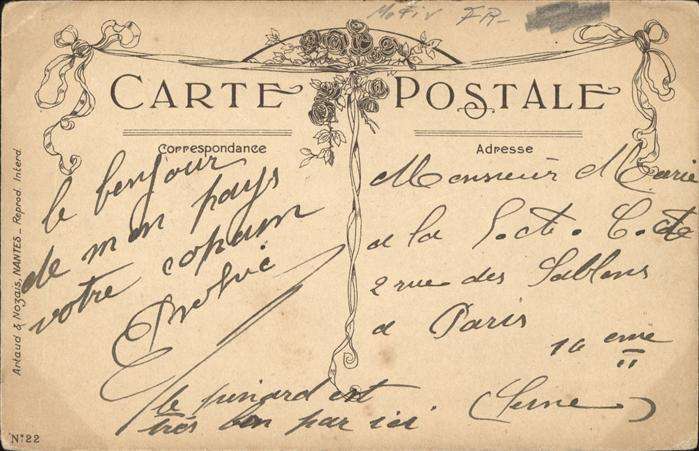 Motiv FR-
CARTE POSTALE
Correspondance
Adresse
le bonjour
de mon pays
votre copain
le pinard est
très bon par ici
Monsieur Marie
a la S.ct. C.te
2 rue des Sablons
a Paris
16 eme
(Seine)
Artaud & Nozais, NANTES _ Reprod. Interd.
N° 22